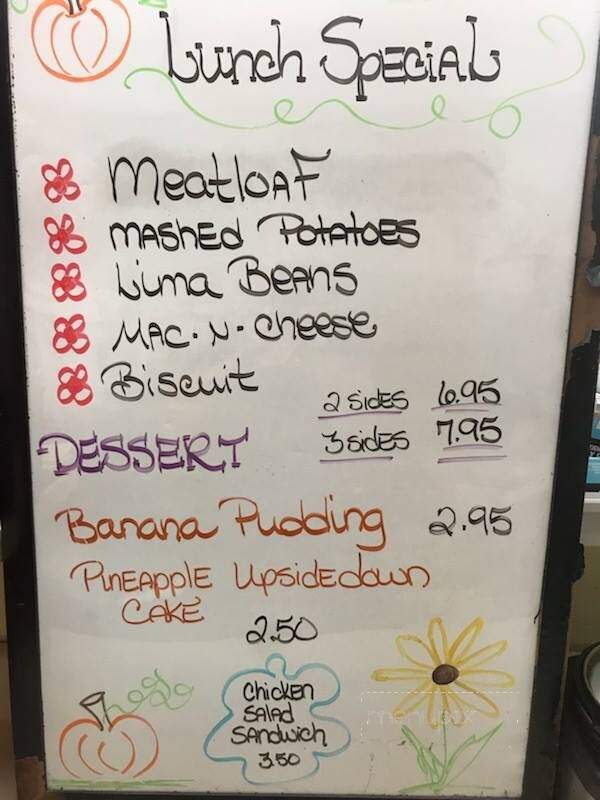 Lunch Special
Meatloaf
Mashed Potatoes
Lima Beans
Mac-N-Cheese
Biscuit
2 sides 6.95
3 sides 7.95
DESSERT
Banana Pudding 2.95
Pineapple Upsidedown
Cake
2.50
Chicken
Salad
Sandwich
3.50
menupix